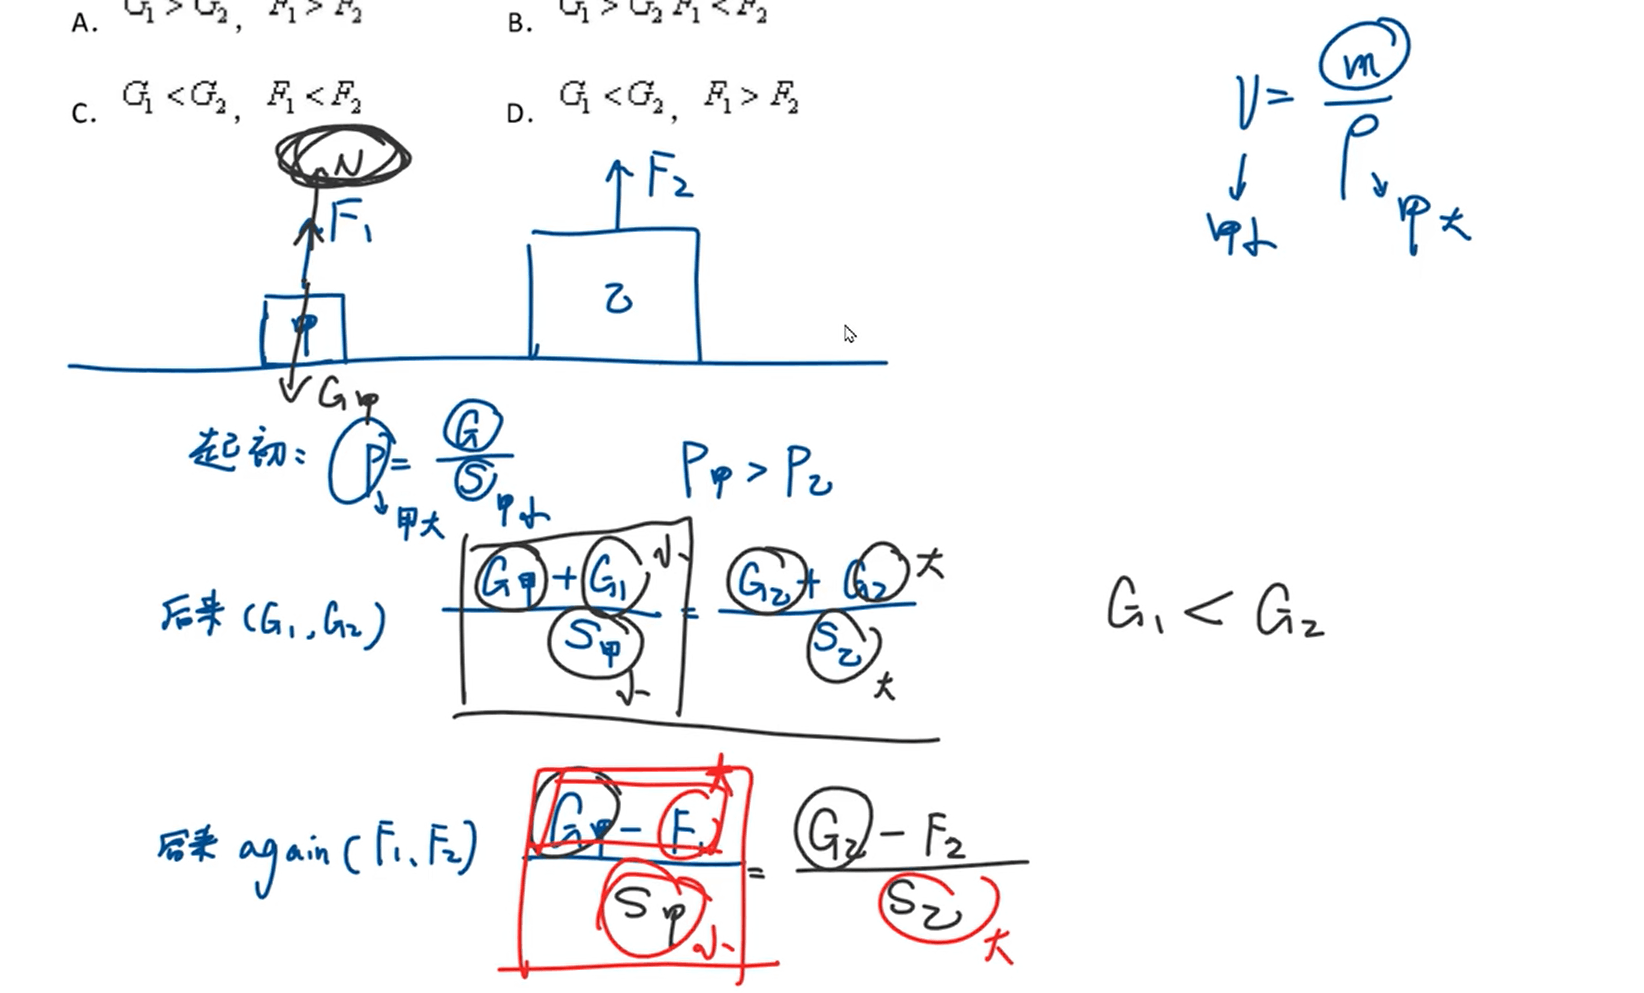 A. G₁ > G₂, F₁ > F₂ B. G₁ > G₂ F₁ < F₂
C. G₁ < G₂, F₁ < F₂ D. G₁ < G₂, F₁ > F₂
V = m/ρ
甲小 甲大
N
F₁ F₂
甲 乙
G甲
起初: P = G/S P甲 > P乙
甲大 甲小
后来 (G₁, G₂) (G甲 + G₁)/S甲 = (G乙 + G₂)/S乙 G₁ < G₂
小 小 大 大
后来 again (F₁、F₂) (G甲 - F₁)/S甲 = (G乙 - F₂)/S乙
大 小 大